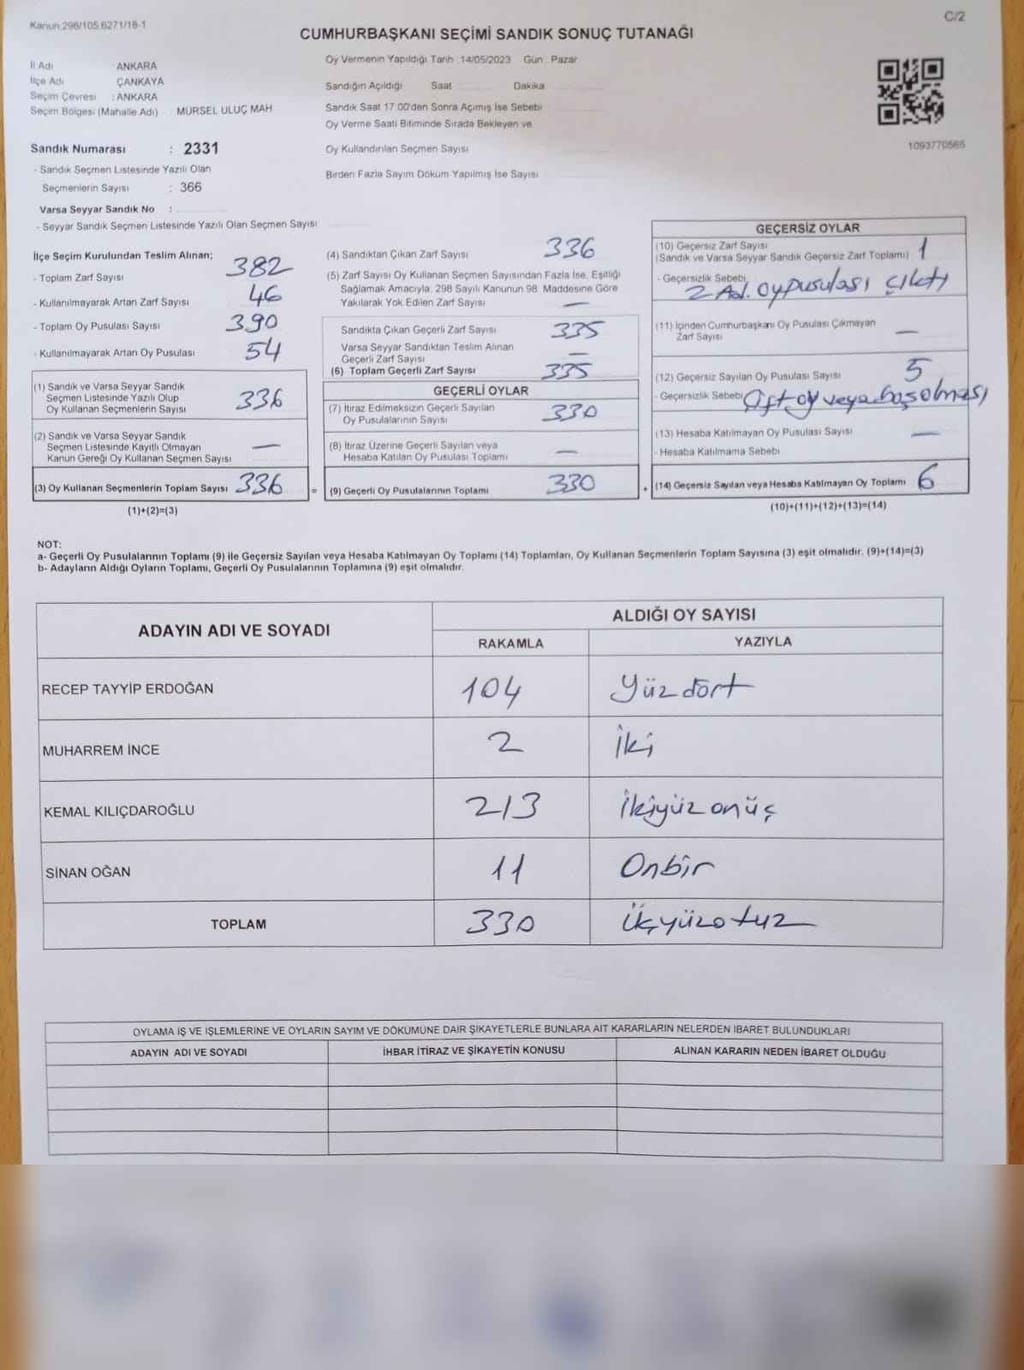 Kanun 298/105 6271/18-1
C/2
CUMHURBAŞKANI SEÇİMİ SANDIK SONUÇ TUTANAĞI
İl Adı ANKARA
İlçe Adı ÇANKAYA
Seçim Çevresi : ANKARA
Seçim Bölgesi (Mahalle Adı) MÜRSEL ULUÇ MAH
Sandık Numarası : 2331
- Sandık Seçmen Listesinde Yazılı Olan
Seçmenlerin Sayısı : 366
Varsa Seyyar Sandık No :
- Seyyar Sandık Seçmen Listesinde Yazılı Olan Seçmen Sayısı
Oy Vermenin Yapıldığı Tarih :14/05/2023 Gün : Pazar
Sandığın Açıldığı Saat Dakika
Sandık Saat 17.00'den Sonra Açımış İse Sebebi
Oy Verme Saati Bitiminde Sırada Bekleyen ve
Oy Kullandırılan Seçmen Sayısı
Birden Fazla Sayım Döküm Yapılmış İse Sayısı
1093770565
İlçe Seçim Kurulundan Teslim Alınan;
- Toplam Zarf Sayısı 382
- Kullanılmayarak Artan Zarf Sayısı 46
- Toplam Oy Pusulası Sayısı 390
- Kullanılmayarak Artan Oy Pusulası 54
(1) Sandık ve Varsa Seyyar Sandık
Seçmen Listesinde Yazılı Olup
Oy Kullanan Seçmenlerin Sayısı 336
(2) Sandık ve Varsa Seyyar Sandık
Seçmen Listesinde Kayıtlı Olmayan
Kanun Gereği Oy Kullanan Seçmen Sayısı —
(3) Oy Kullanan Seçmenlerin Toplam Sayısı 336
(1)+(2)=(3)
(4) Sandıktan Çıkan Zarf Sayısı 336
(5) Zarf Sayısı Oy Kullanan Seçmen Sayısından Fazla İse, Eşitliği
Sağlamak Amacıyla, 298 Sayılı Kanunun 98. Maddesine Göre
Yakılarak Yok Edilen Zarf Sayısı —
Sandıkta Çıkan Geçerli Zarf Sayısı 335
Varsa Seyyar Sandıktan Teslim Alınan
Geçerli Zarf Sayısı —
(6) Toplam Geçerli Zarf Sayısı 335
GEÇERLİ OYLAR
(7) İtiraz Edilmeksizin Geçerli Sayılan
Oy Pusulalarının Sayısı 330
(8) İtiraz Üzerine Geçerli Sayılan veya
Hesaba Katılan Oy Pusulası Toplamı —
= (9) Geçerli Oy Pusulalarının Toplamı 330
GEÇERSİZ OYLAR
(10) Geçersiz Zarf Sayısı
(Sandık ve Varsa Seyyar Sandık Geçersiz Zarf Toplamı) 1
- Geçersizlik Sebebi
2 Ad. Oy pusulası çıktı
(11) İçinden Cumhurbaşkanı Oy Pusulası Çıkmayan
Zarf Sayısı —
(12) Geçersiz Sayılan Oy Pusulası Sayısı 5
- Geçersizlik Sebebi Çift oy veya boş olması
(13) Hesaba Katılmayan Oy Pusulası Sayısı —
- Hesaba Katılmama Sebebi
+ (14) Geçersiz Sayılan veya Hesaba Katılmayan Oy Toplamı 6
(10)+(11)+(12)+(13)=(14)
NOT:
a- Geçerli Oy Pusulalarının Toplamı (9) ile Geçersiz Sayılan veya Hesaba Katılmayan Oy Toplamı (14) Toplamları, Oy Kullanan Seçmenlerin Toplam Sayısına (3) eşit olmalıdır. (9)+(14)=(3)
b- Adayların Aldığı Oyların Toplamı, Geçerli Oy Pusulalarının Toplamına (9) eşit olmalıdır.
ADAYIN ADI VE SOYADI ALDIĞI OY SAYISI
RAKAMLA YAZIYLA
RECEP TAYYİP ERDOĞAN 104 Yüz dört
MUHARREM İNCE 2 İki
KEMAL KILIÇDAROĞLU 213 İkiyüz onüç
SİNAN OĞAN 11 Onbir
TOPLAM 330 Üçyüzotuz
OYLAMA İŞ VE İŞLEMLERİNE VE OYLARIN SAYIM VE DÖKÜMÜNE DAİR ŞİKAYETLERLE BUNLARA AİT KARARLARIN NELERDEN İBARET BULUNDUKLARI
ADAYIN ADI VE SOYADI İHBAR İTİRAZ VE ŞİKAYETİN KONUSU ALINAN KARARIN NEDEN İBARET OLDUĞU